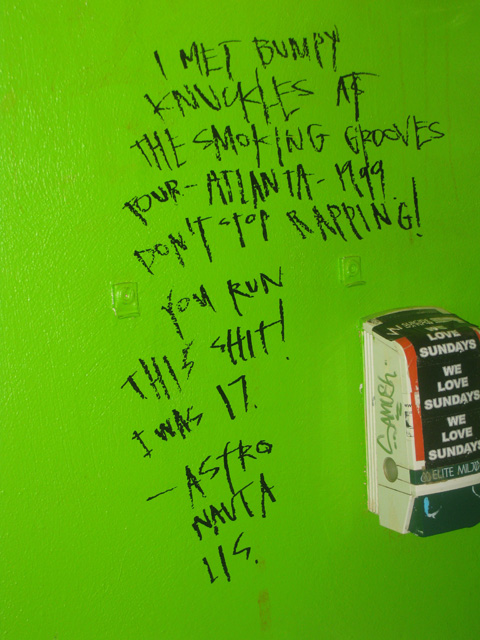 I MET BUMPY
KNUCKLES AT
THE SMOKING GROOVES
TOUR - ATLANTA - 1999.
DON'T STOP RAPPING!
YOU RUN
THIS SHIT!
I WAS 17.
- ASTRO
NAUTA
LIS.
WE LOVE
SUNDAYS
WE
LOVE
SUNDAYS
WE
LOVE
SUNDAYS
ELITE MILD